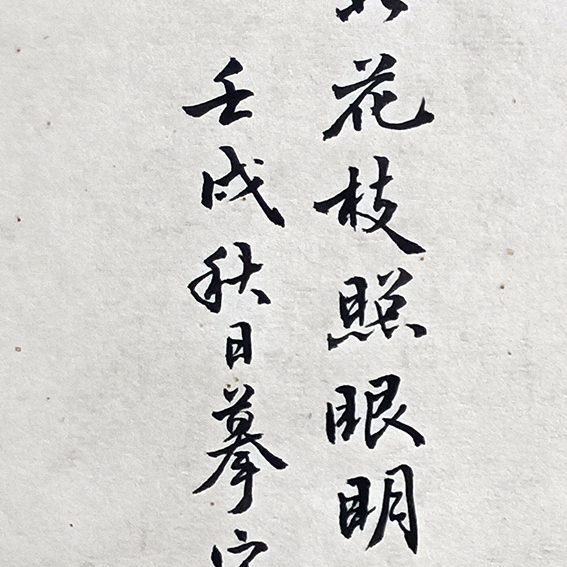 花枝照眼明
壬戌秋日摹宋